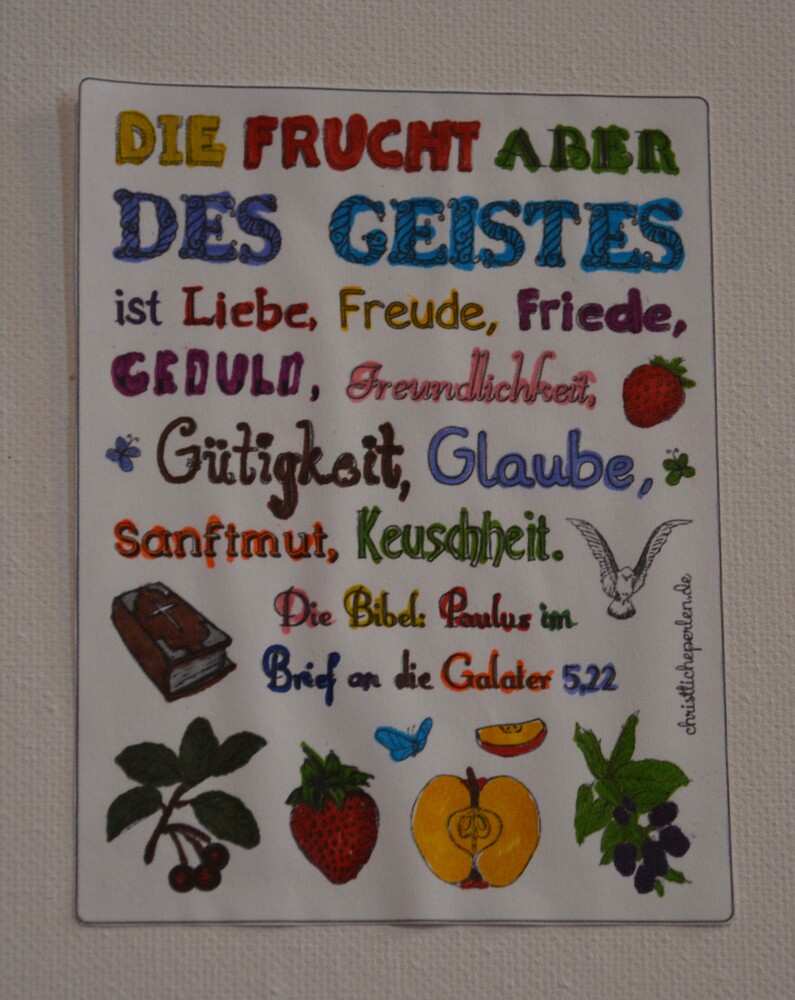 DIE FRUCHT ABER
DES GEISTES
ist Liebe, Freude, Friede,
GEDULD, Freundlichkeit,
Gütigkeit, Glaube,
Sanftmut, Keuschheit.
Die Bibel: Paulus im
Brief an die Galater 5,22
christlicheperlen.de